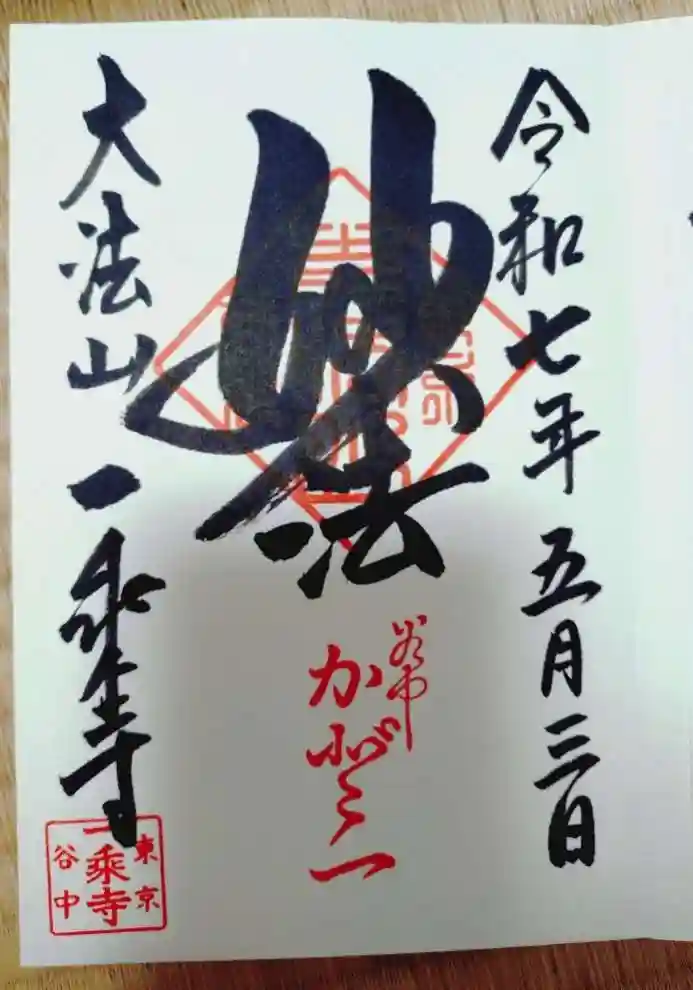 令和七年五月三日
妙法
谷中
大法山一乗寺
東京
一乗寺
谷中